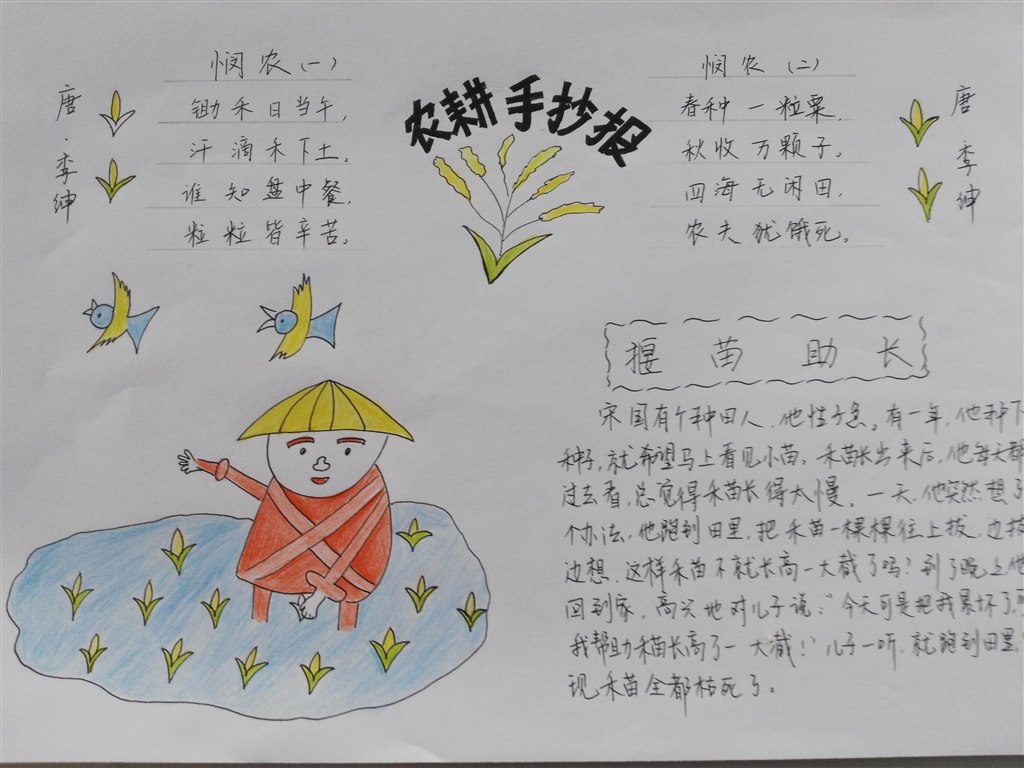 农耕手抄报
悯农(一)
唐·李绅
锄禾日当午,
汗滴禾下土。
谁知盘中餐,
粒粒皆辛苦。
悯农(二)
唐 李绅
春种一粒粟,
秋收万颗子。
四海无闲田,
农夫犹饿死。
揠苗助长
宋国有个种田人,他性子急。有一年,他种下
种子,就希望马上看见小苗。禾苗长出来后,他每天都
过去看,总觉得禾苗长得太慢。一天,他突然想了
个办法,他跑到田里,把禾苗一棵棵往上拔,边拔
边想,这样禾苗不就长高一大截了吗?到了晚上他
回到家,高兴地对儿子说:“今天可是把我累坏了,
我帮助禾苗长高了一大截!”儿子一听,就跑到田里,
现禾苗全都枯死了。